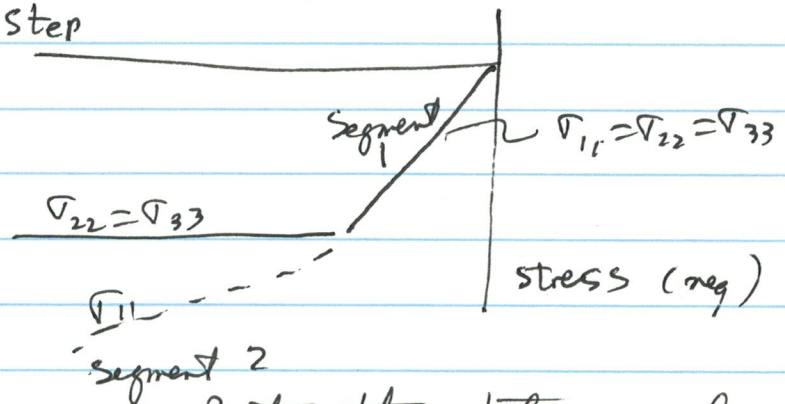 Step
Segment
1
σ₁₁=σ₂₂=σ₃₃
σ₂₂=σ₃₃
stress (neg)
σ₁₁
Segment 2